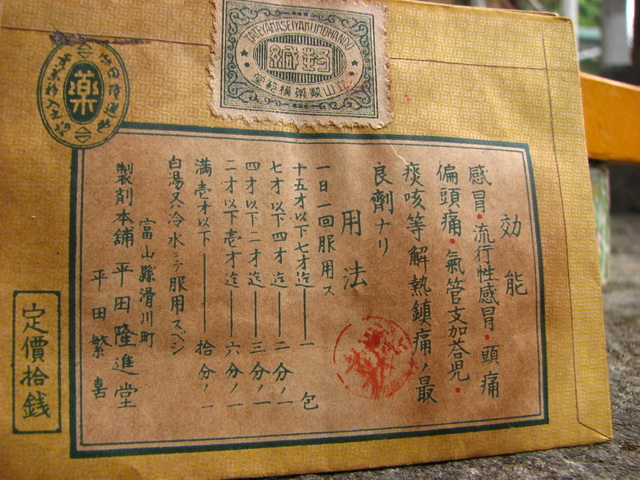 TATEYAMASEIYAKUMOHANDO
封緘
薬
効能
感冒・流行性感冒・頭痛
偏頭痛・氣管支加荅児・
痰咳等解熱鎮痛ノ最
良劑ナリ
用法
一日一回服用ス
十五才以下七才迄──一包
七才以下四才迄──二分ノ一
四才以下二才迄──三分ノ一
二才以下壱才迄──六分ノ一
満壱才以下──拾分ノ一
白湯又冷水ニテ服用スベシ
富山縣滑川町
製剤本舗 平田隆進堂
平田繁喜
定價拾銭